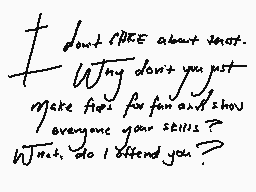 I dont CARE about that.
Why don't you just
Make flips for fun and show
everyone your skills?
What, do I offend you?